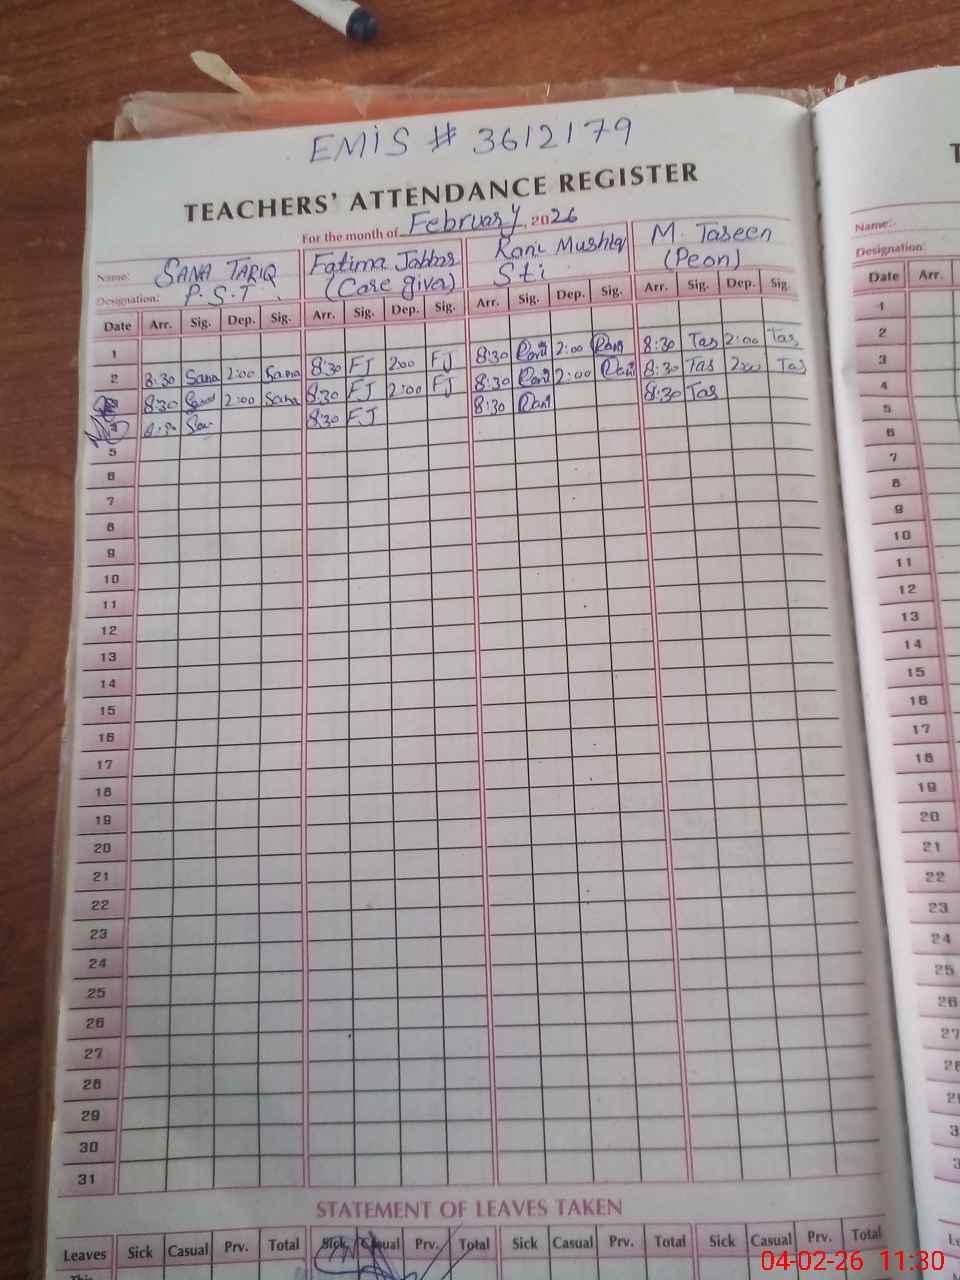 EMIS # 3612179
TEACHERS' ATTENDANCE REGISTER
For the month of February, 2026
Name: SANA TARIQ Fatima Jabbar Rani Mushtaq M. Taseen
Designation: P.S.T. (Care giva) Sti (Peon)
Date Arr. Sig. Dep. Sig. Arr. Sig. Dep. Sig. Arr. Sig. Dep. Sig. Arr. Sig. Dep. Sig.
1
2 8:30 Sana 2:00 Sana 8:30 FJ 2:00 FJ 8:30 Rani 2:00 Rani 8:30 Tas 2:00 Tas
8:30 Sana 2:00 Sana 8:30 FJ 2:00 FJ 8:30 Rani 2:00 Rani 8:30 Tas 2:00 Tas
8:30 8:30 FJ 8:30 Rani 8:30 Tas
5
6
7
8
9
10
11
12
13
14
15
16
17
18
19
20
21
22
23
24
25
26
27
28
29
30
31
STATEMENT OF LEAVES TAKEN
Leaves Sick Casual Prv. Total Sick Casual Prv. Total Sick Casual Prv. Total Sick Casual Prv. Total
This
Name:
Designation:
Date Arr.
1
2
3
4
5
6
7
8
9
10
11
12
13
14
15
16
17
18
19
20
21
22
23
24
25
26
27
04-02-26 11:30